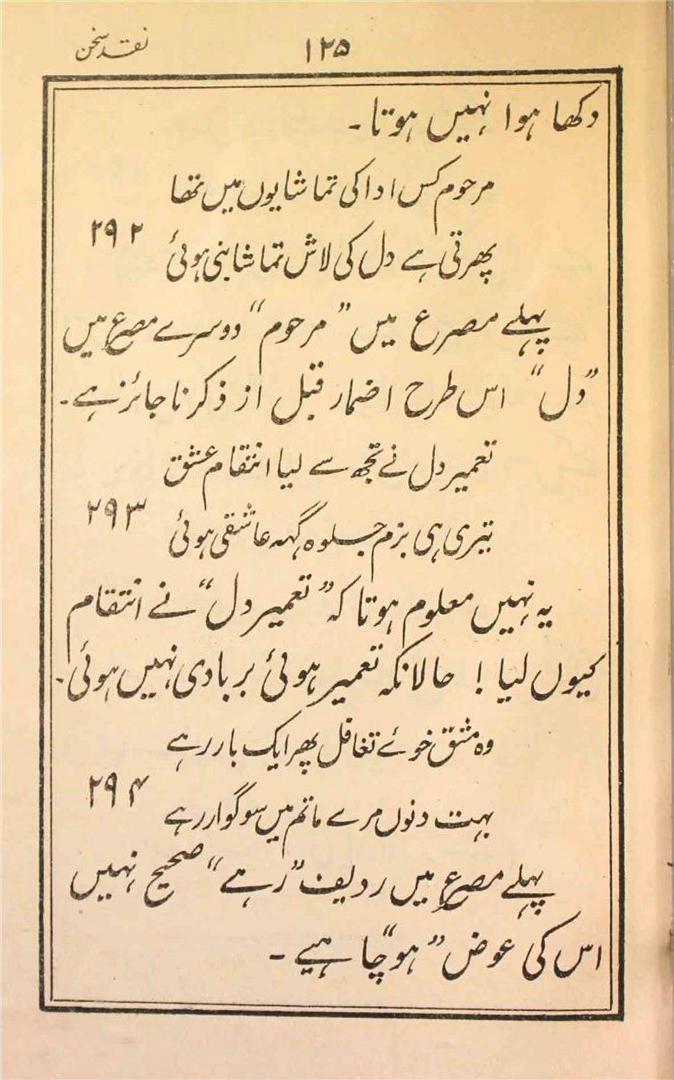 نقد سخن
۱۲۵
دکھا ہوا نہیں ہوتا۔
مرحوم کس ادا کی تماشایوں میں تھا
۲۹۲
پھرتی ہے دل کی لاش تماشا بنی ہوئی
پہلے مصرع میں "مرحوم" دوسرے مصرع میں
"دل" اس طرح اضمار قبل از ذکر ناجائز ہے۔
تعمیر دل نے تجھ سے لیا انتقام عشق
۲۹۳
تیری ہی بزم جلوہ گہہ عاشقی ہوئی
یہ نہیں معلوم ہوتا کہ "تعمیر دل" نے انتقام
کیوں لیا! حالانکہ تعمیر ہوئی بربادی نہیں ہوئی۔
وہ مشق خوئے تغافل پھر ایک بار رہے
۲۹۴
بہت دنوں مرے ماتم میں سوگوار رہے
پہلے مصرع میں ردیف "رہے" صحیح نہیں
اس کی عوض "ہو" چاہیے۔